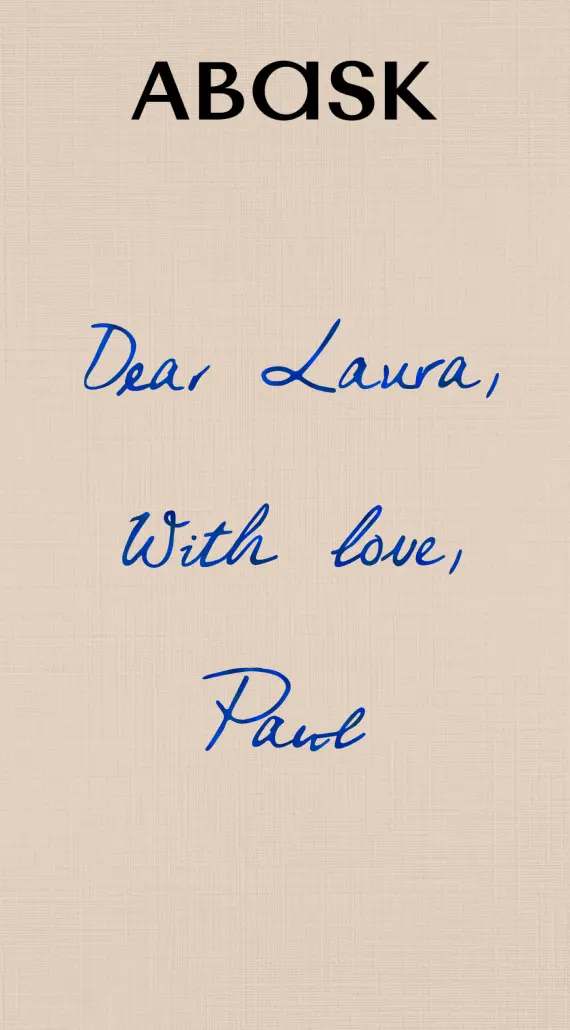 ABASK
Dear Laura,
With love,
Paul